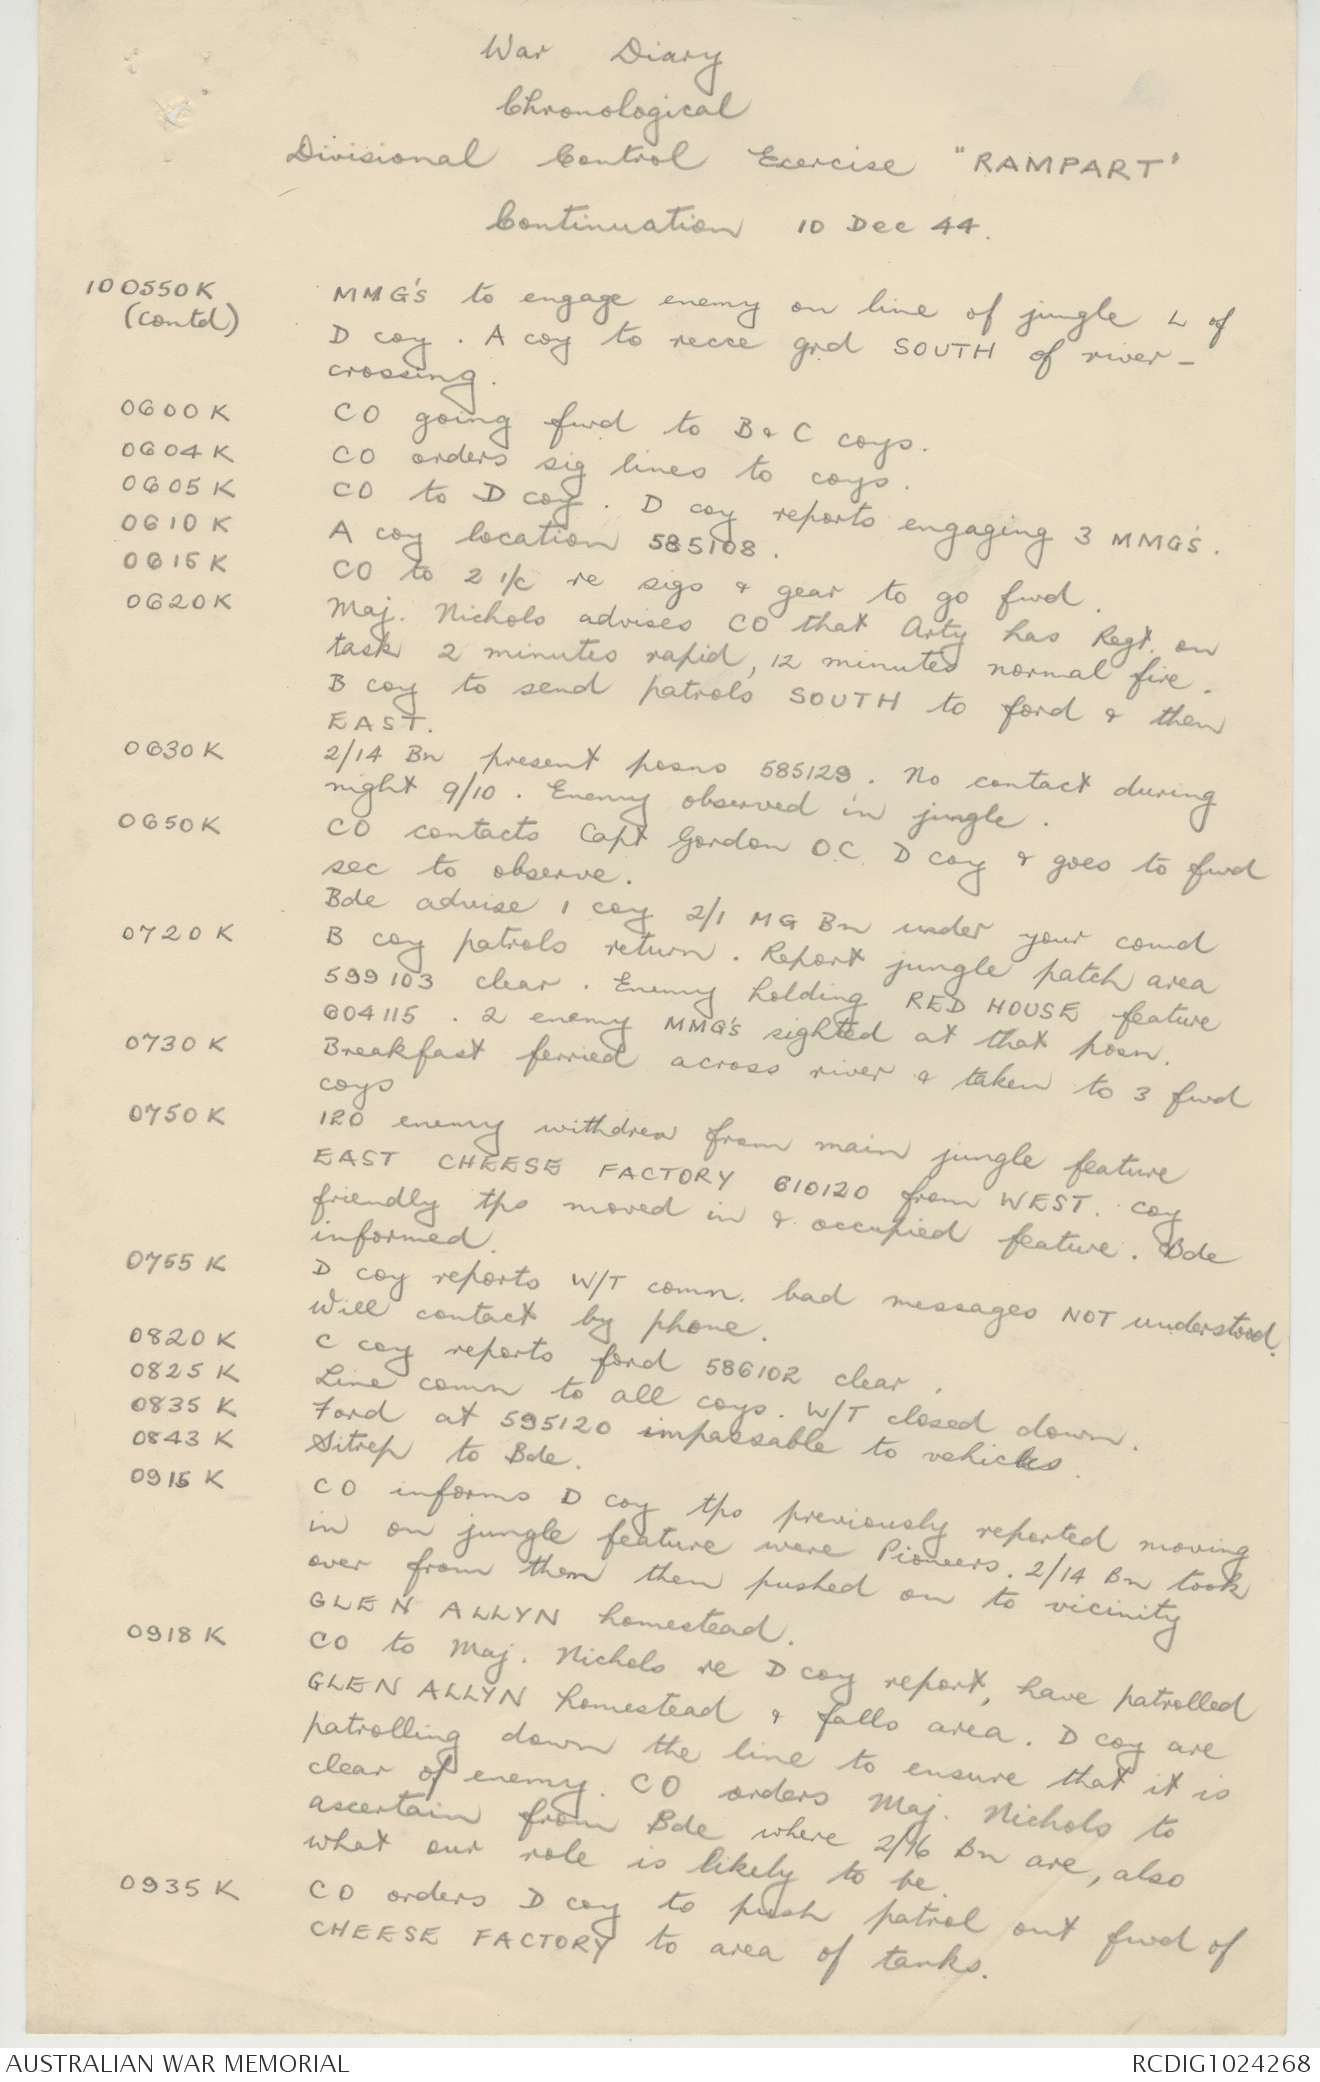 War Diary
Chronological
Divisional Control Exercise "RAMPART'
Continuation 10 Dec 44.
100550K MMG's to engage enemy on line of jungle L of
(contd) D coy. A coy to recce grd SOUTH of river-
crossing.
0600K CO going fwd to B & C coys.
0604K CO orders sig lines to coys.
0605K CO to D coy. D coy reports engaging 3 MMG's.
0610K A coy location 585108.
0615K CO to 2 i/c re sigs & gear to go fwd.
0620K Maj. Nichols advises CO that Arty has Regt. on
task 2 minutes rapid, 12 minutes normal fire.
B coy to send patrols SOUTH to ford & then
EAST.
0630K 2/14 Bn present posns 585129. No contact during
night 9/10. Enemy observed in jungle.
0650K CO contacts Capt Gordon OC D coy & goes to fwd
sec to observe.
Bde advise 1 coy 2/1 MG Bn under your comd
0720K B coy patrols return. Report jungle patch area
599103 clear. Enemy holding RED HOUSE feature
604115. 2 enemy MMG's sighted at that posn.
0730K Breakfast ferried across river & taken to 3 fwd
coys
0750K 120 enemy withdrew from main jungle feature
EAST CHEESE FACTORY 610120 from WEST. coy
friendly tps moved in & occupied feature. Bde
informed.
0755K D coy reports W/T comn. bad messages NOT understood.
Will contact by phone.
0820K C coy reports ford 586102 clear.
0825K Line comn to all coys. W/T closed down.
0835K Ford at 595120 impassable to vehicles.
0843K Sitrep to Bde.
0915K CO informs D coy tps previously reported moving
in on jungle feature were Pioneers. 2/14 Bn took
over from them then pushed on to vicinity
GLEN ALLYN homestead.
0918K CO to Maj. Nichols re D coy report, have patrolled
GLEN ALLYN homestead & falls area. D coy are
patrolling down the line to ensure that it is
clear of enemy. CO orders Maj. Nichols to
ascertain from Bde where 2/16 Bn are, also
what our role is likely to be.
0935K CO orders D coy to push patrol out fwd of
CHEESE FACTORY to area of tanks.
AUSTRALIAN WAR MEMORIAL
RCDIG1024268